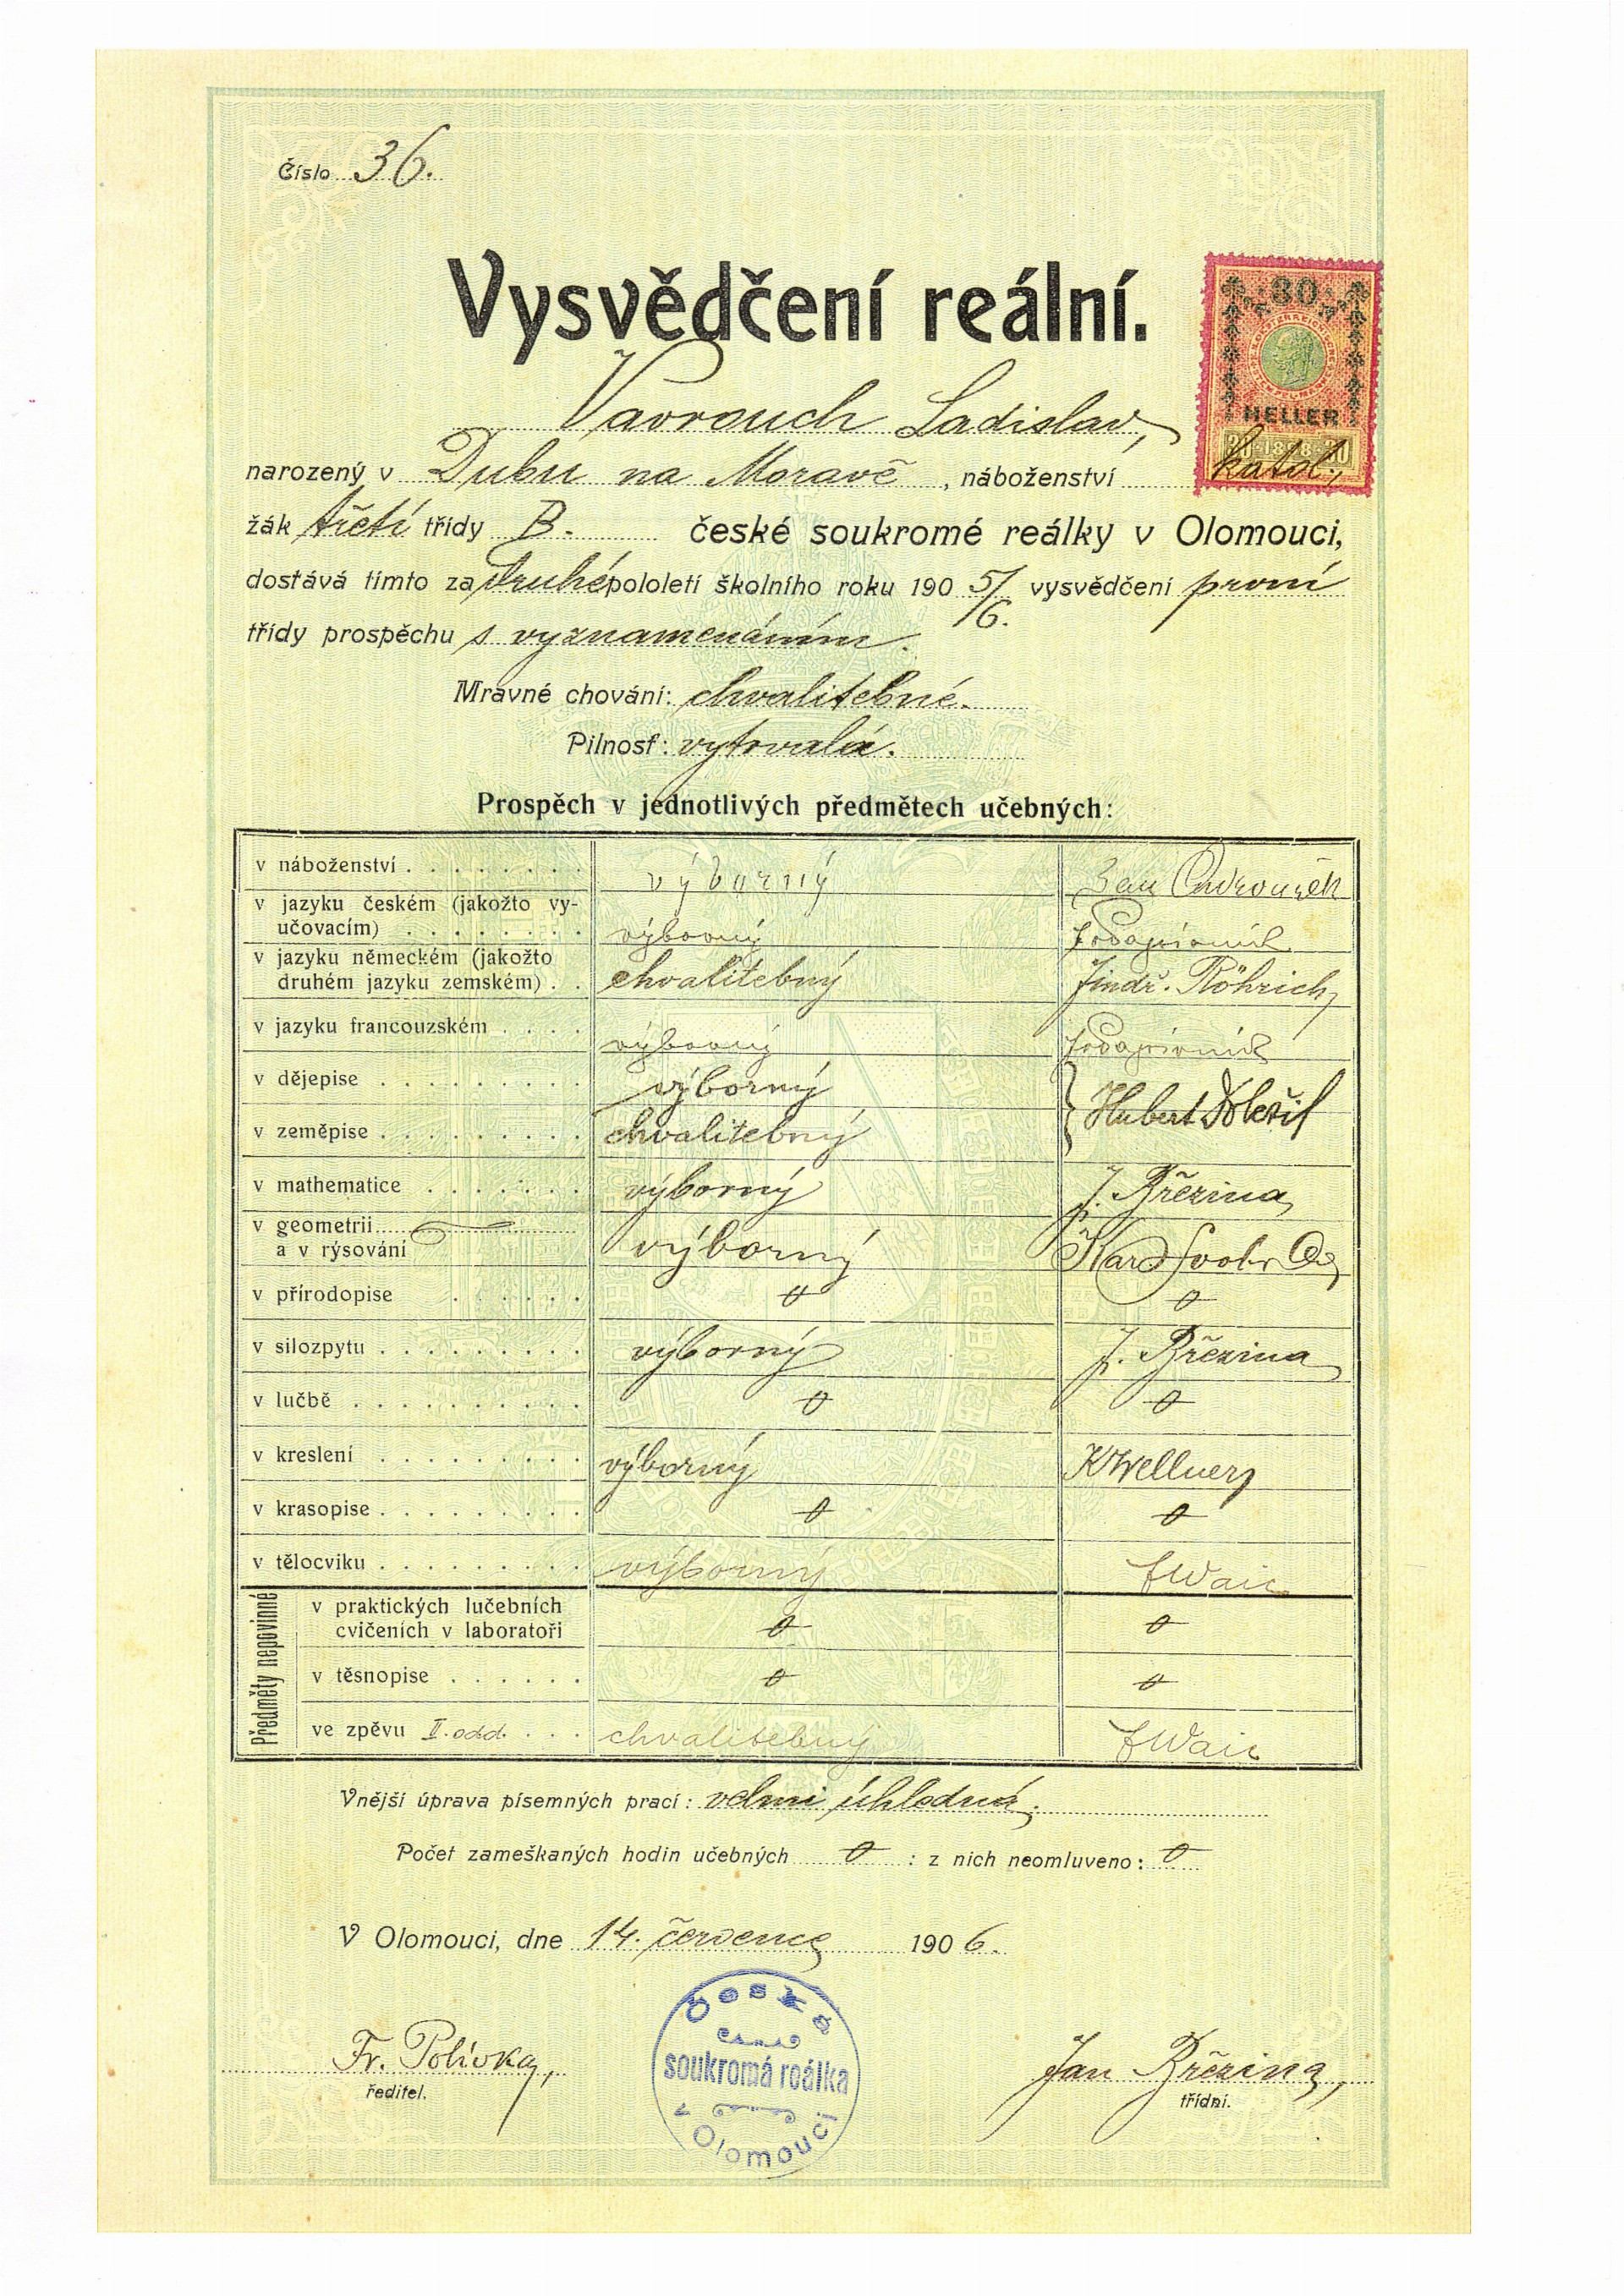 Číslo 36.
80
HELLER
1898
Vysvědčení reální.
Vavrouch Ladislav,
narozený v Dubu na Moravě, náboženství katol.,
žák třetí třídy B. české soukromé reálky v Olomouci,
dostává tímto za druhé pololetí školního roku 1905/6. vysvědčení první
třídy prospěchu s vyznamenáním.
Mravné chování: chvalitebné.
Pilnosť: vytrvalá.
Prospěch v jednotlivých předmětech učebných:
v náboženství . . . . . . . . výborný Jan
v jazyku českém (jakožto vy-
učovacím) . . . . . . . . výborný
v jazyku německém (jakožto
druhém jazyku zemském) . . chvalitebný Jindř. Röhrich
v jazyku francouzském . . . . výborný
v dějepise . . . . . . . . . výborný Hubert Doležil
v zeměpise . . . . . . . . . chvalitebný
v mathematice . . . . . . . výborný J. Březina
v geometrii
a v rýsování výborný Kar. Svoboda
v přírodopise . . . . . . 0 0
v silozpytu . . . . . . . . . výborný J. Březina
v lučbě . . . . . . . . . . 0 0
v kreslení . . . . . . . . . výborný KWellner
v krasopise . . . . . . . . . 0 0
v tělocviku . . . . . . . . . výborný FWaic
Předměty nepovinné
v praktických lučebních
cvičeních v laboratoři 0 0
v těsnopise . . . . . . 0 0
ve zpěvu II. odd. . . . chvalitebný FWaic
Vnější úprava písemných prací: velmi úhledná.
Počet zameškaných hodin učebných 0 : z nich neomluveno: 0
V Olomouci, dne 14. července 1906.
Česká
soukromá reálka
v Olomouci
Fr. Polívka, Jan Březina,
ředitel. třídní.